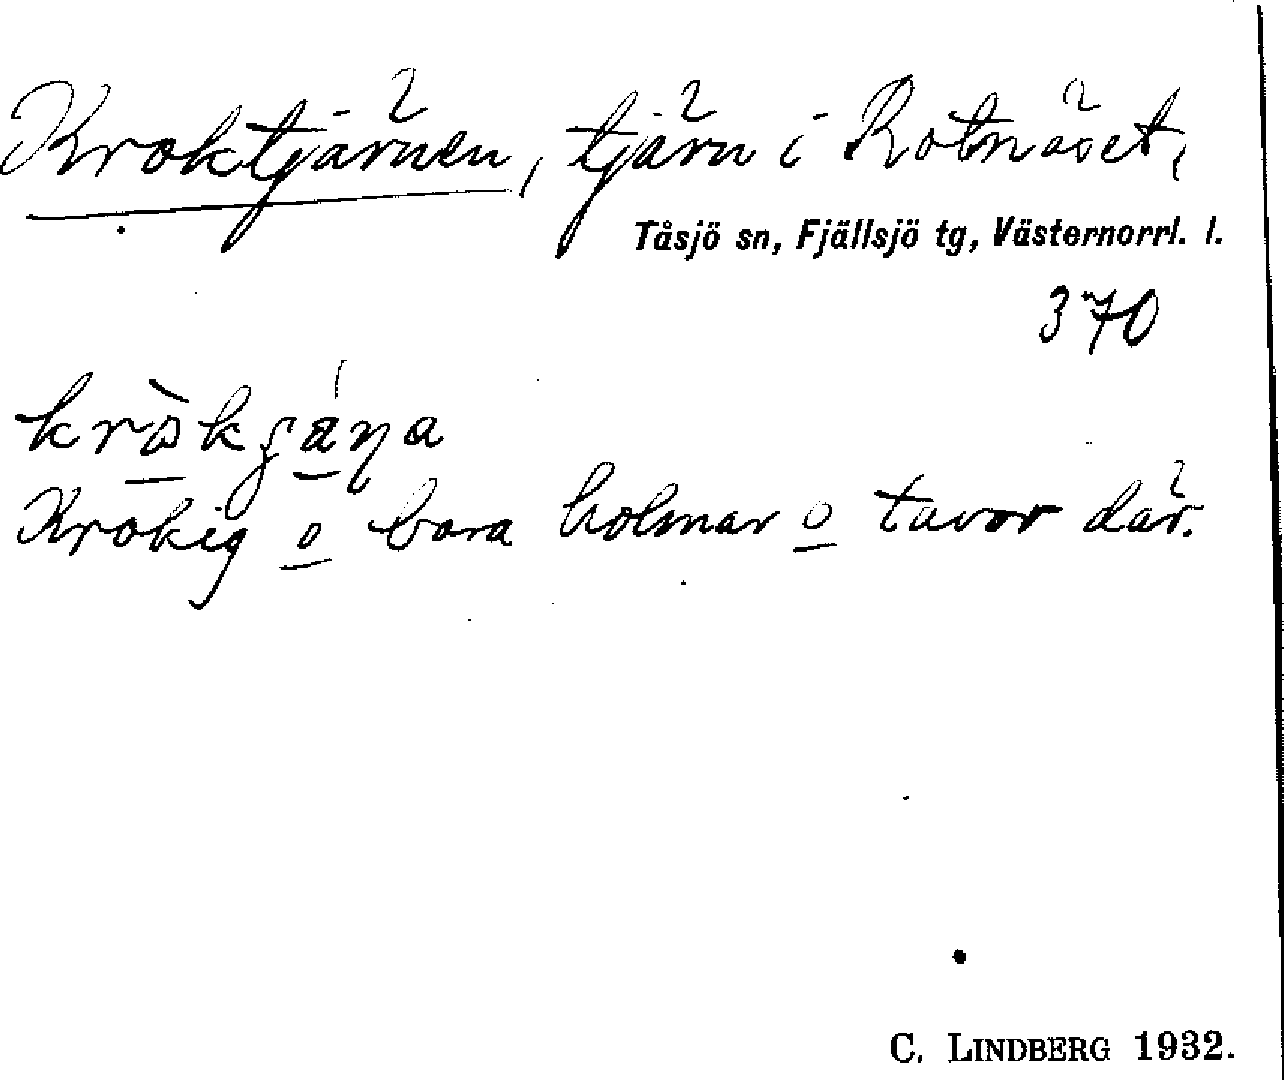 Kroktjärnen, tjärn i Rotnäset,
Tåsjö sn, Fjällsjö tg, Västernorrl. l.
370
Krokig o bara holmar o tavor där.
C. LINDBERG 1932.